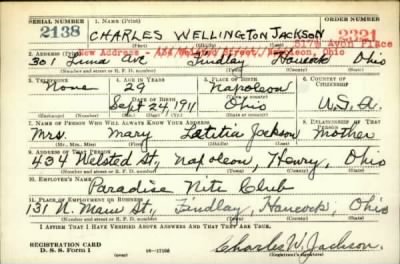 SERIAL NUMBER 1. NAME (Print) ORDER NUMBER
2138 CHARLES WELLINGTON JACKSON 2321
(First) (Middle) (Last)
517½ Avon Place
New Address - Welsted Street, Napoleon, Ohio
2. ADDRESS (Print)
301 Lima Ave Findlay Hancock Ohio
(Number and street or R. F. D. number) (Town) (County) (State)
3. TELEPHONE 4. AGE IN YEARS 5. PLACE OF BIRTH 6. COUNTRY OF CITIZENSHIP
None 29 Napoleon
DATE OF BIRTH
Sept 24, 1911 Ohio U.S.A.
(Exchange) (No.) (Mo.) (Day) (Yr.) (State or country)
7. NAME OF PERSON WHO WILL ALWAYS KNOW YOUR ADDRESS 8. RELATIONSHIP OF THAT PERSON
Mrs. Mary Latitia Jackson Mother
(Mr., Mrs., Miss) (First) (Middle) (Last)
9. ADDRESS OF THAT PERSON
434 Welsted St, Napoleon, Henry, Ohio
(Number and street or R. F. D. number) (Town) (County) (State)
10. EMPLOYER'S NAME
Paradise Nite Club
11. PLACE OF EMPLOYMENT OR BUSINESS
131 N. Main St, Findlay, Hancock, Ohio
(Number and street or R. F. D. number) (Town) (County) (State)
I AFFIRM THAT I HAVE VERIFIED ABOVE ANSWERS AND THAT THEY ARE TRUE.
REGISTRATION CARD
D. S. S. Form 1 16—17105 Charles W. Jackson.
(Registrant's signature)